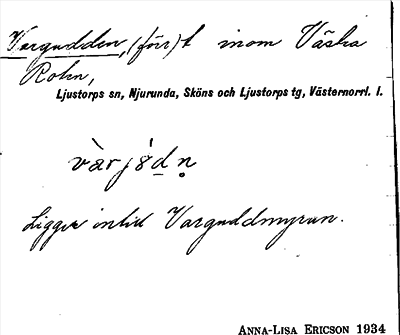 Vargudden, (förr) t inom Västra
Rotn,
Ljustorps sn, Njurunda, Sköns och Ljustorps tg, Västernorrl. l.
Ligger intill Varguddmyran.
ANNA-LISA ERICSON 1934